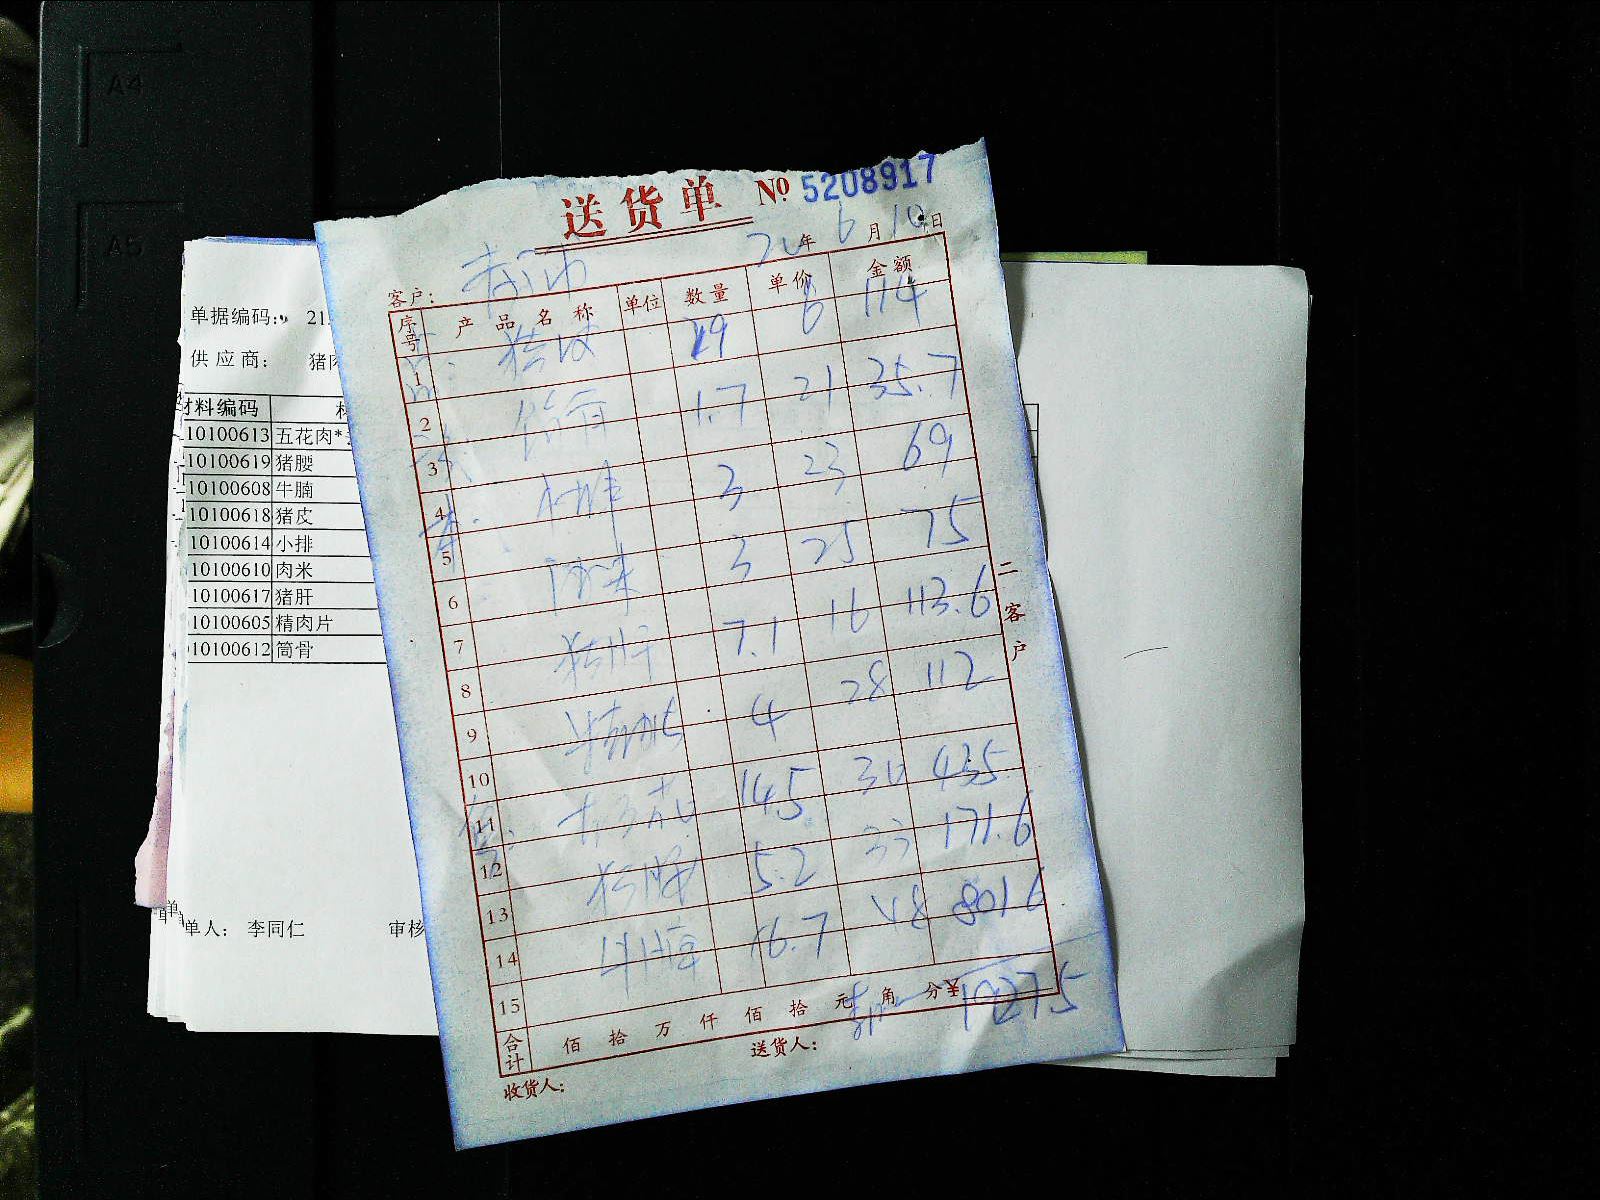 A4
A5
送货单 № 5208917
20年 6月 10日
客户：
序号 产品名称 单位 数量 单价 金额
1 猪皮 29 6 174
2 筒骨 1.7 21 35.7
3
4 3 23 69
5 肉米 3 25 75
6
7 猪肝 7.1 16 113.6
8
9 4 28 112
10
11 五花 14.5 30 435
12 猪腰 5.2 33 171.6
13
14 牛腩 16.7 48 801.6
15
合计 佰 拾 万 仟 佰 拾 元 角 分 ¥
收货人： 送货人：
二 客户
单据编码： 21
供应商： 猪肉
材料编码
10100613 五花肉*
10100619 猪腰
10100608 牛腩
10100618 猪皮
10100614 小排
10100610 肉米
10100617 猪肝
10100605 精肉片
10100612 筒骨
单人： 李同仁 审核